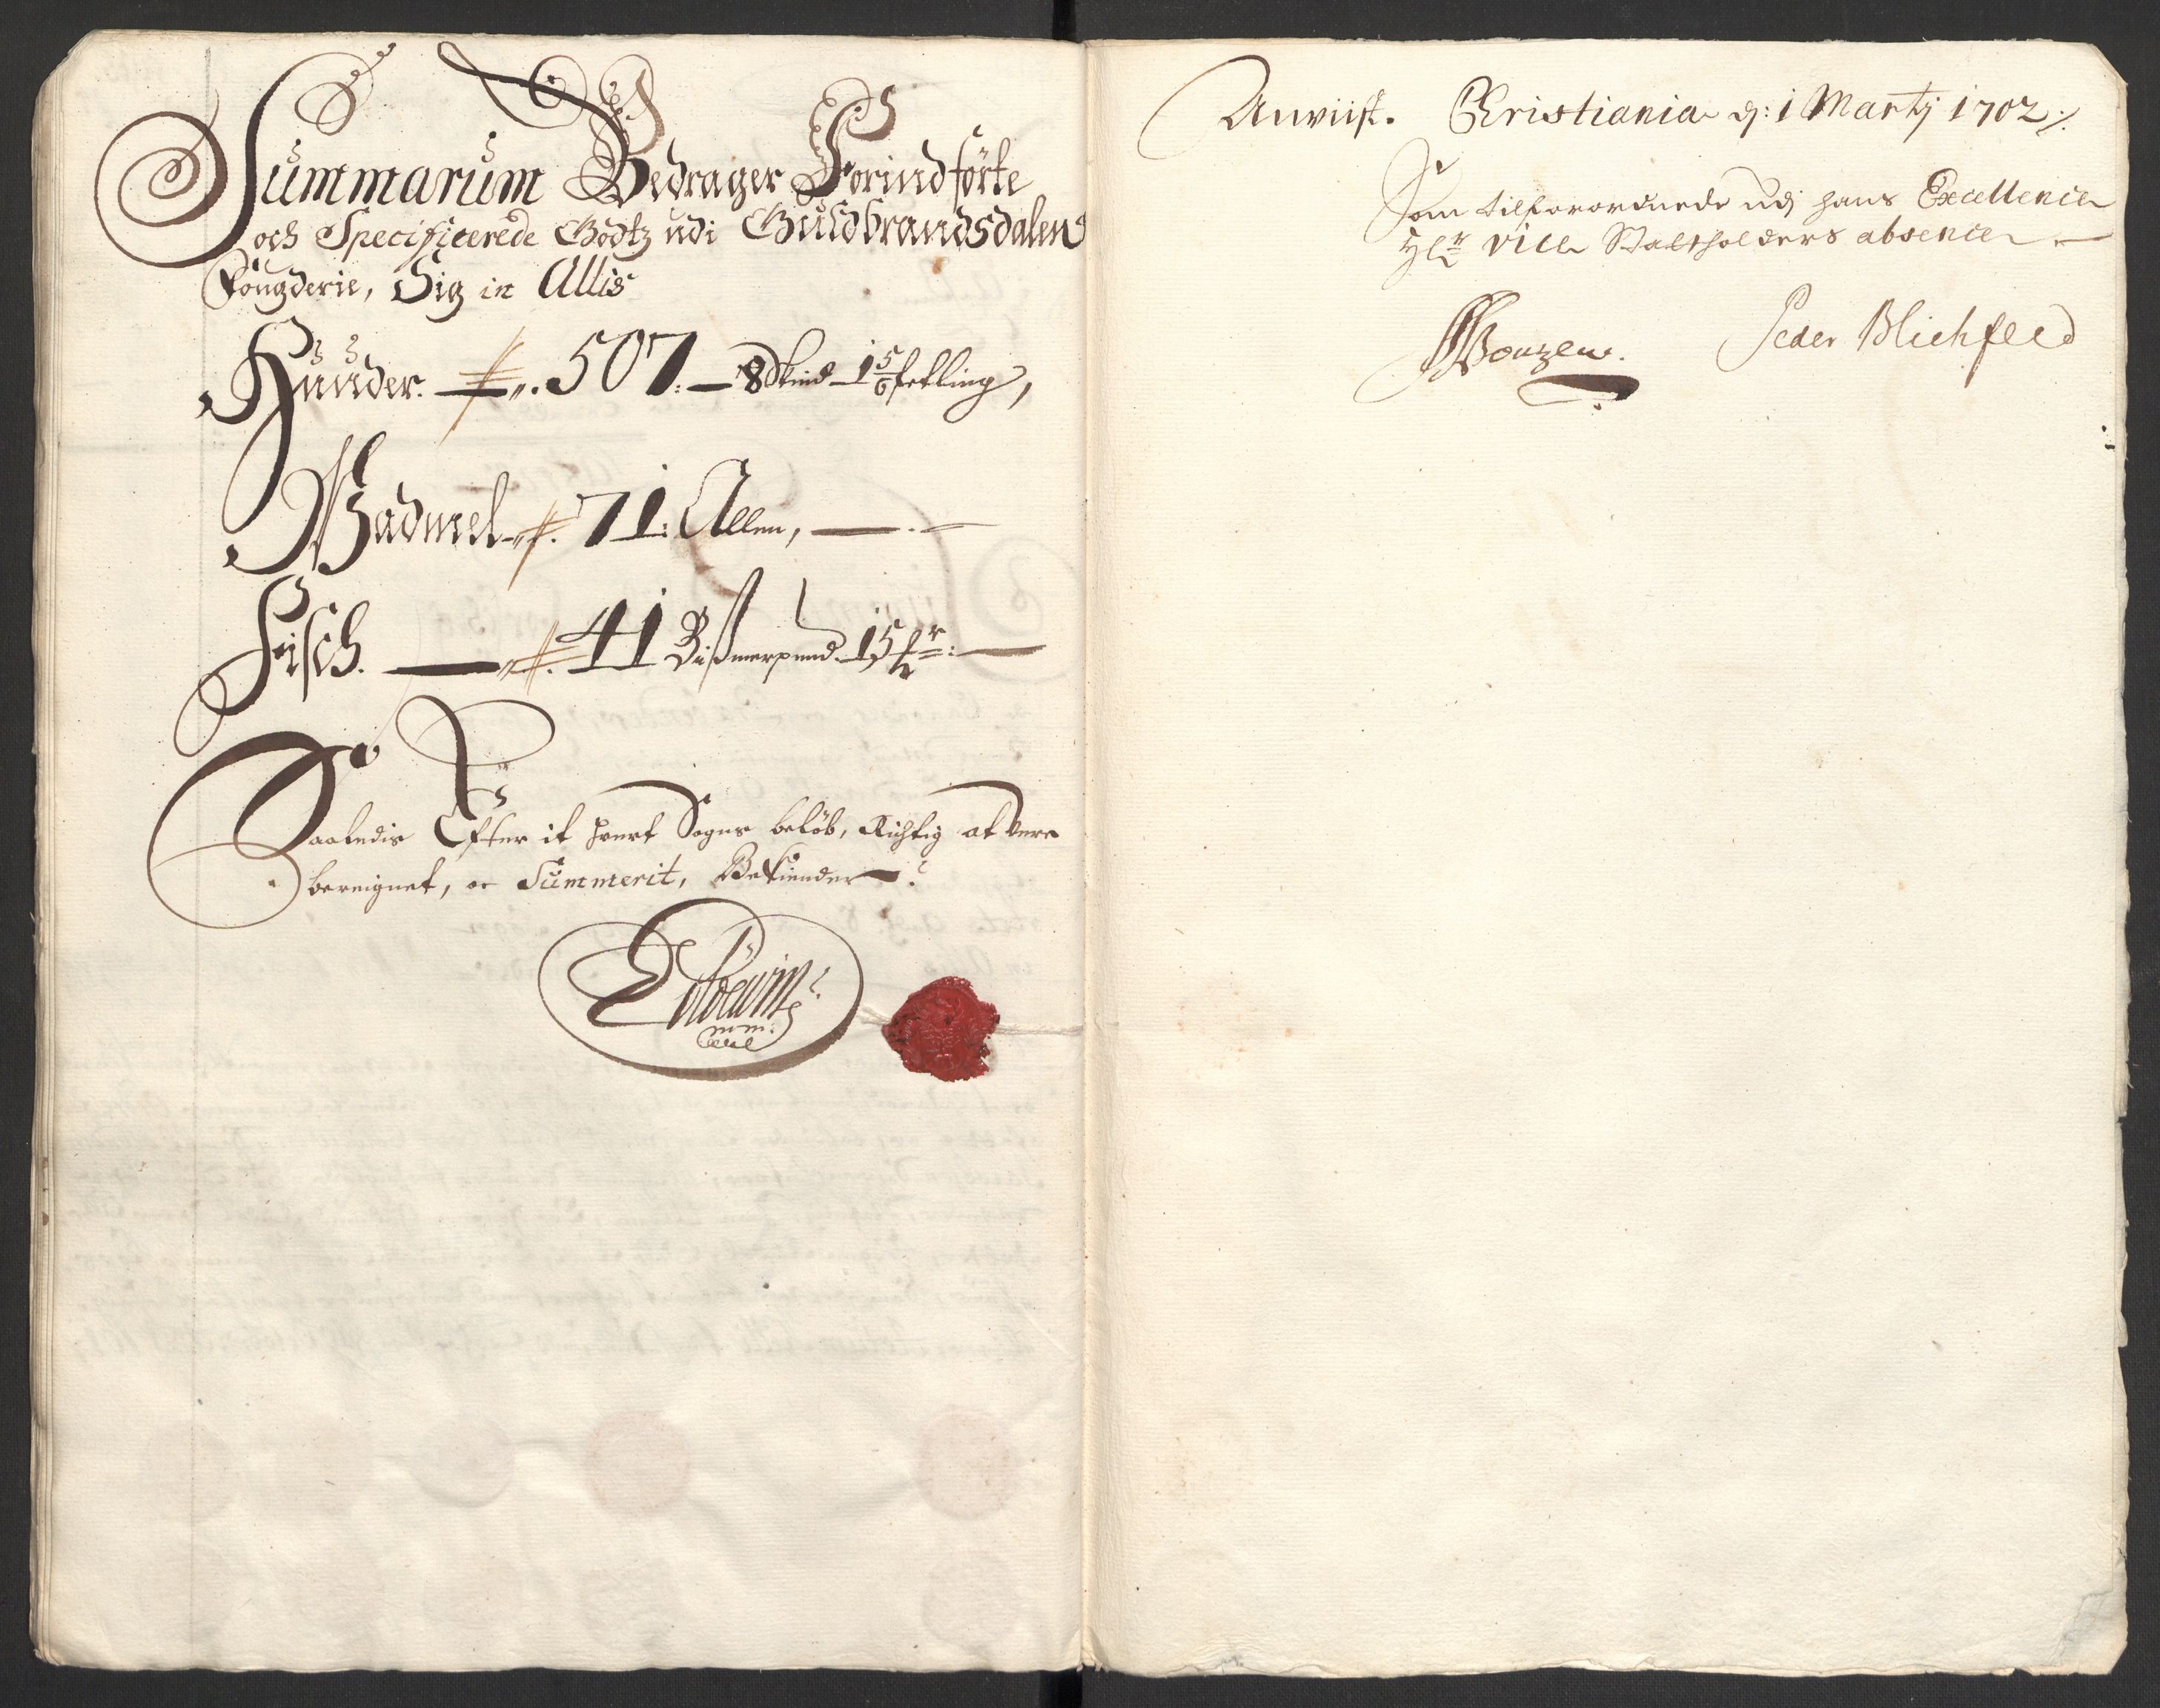 Summarum Bedrager Forindförte
och Specificerede Godtz udi Guldbrandsdalens
Fougderie, Sig in Allis
Hunder. 507. 8 Skind 1 5/6 fetling,
Wadmel 71: Allen,
Fisch. 41 Bismerpund 15 
Saaledis Efter it hvert Sogns beløb, Richtig at vere
bereignet, oc Summerit, Bekiender
mm:
Anviist. Christiania d: 1 Martij 1702
Som tilforordnede udj hans Excellence
Hr Vice Statholders absence
Peder Blichfeld